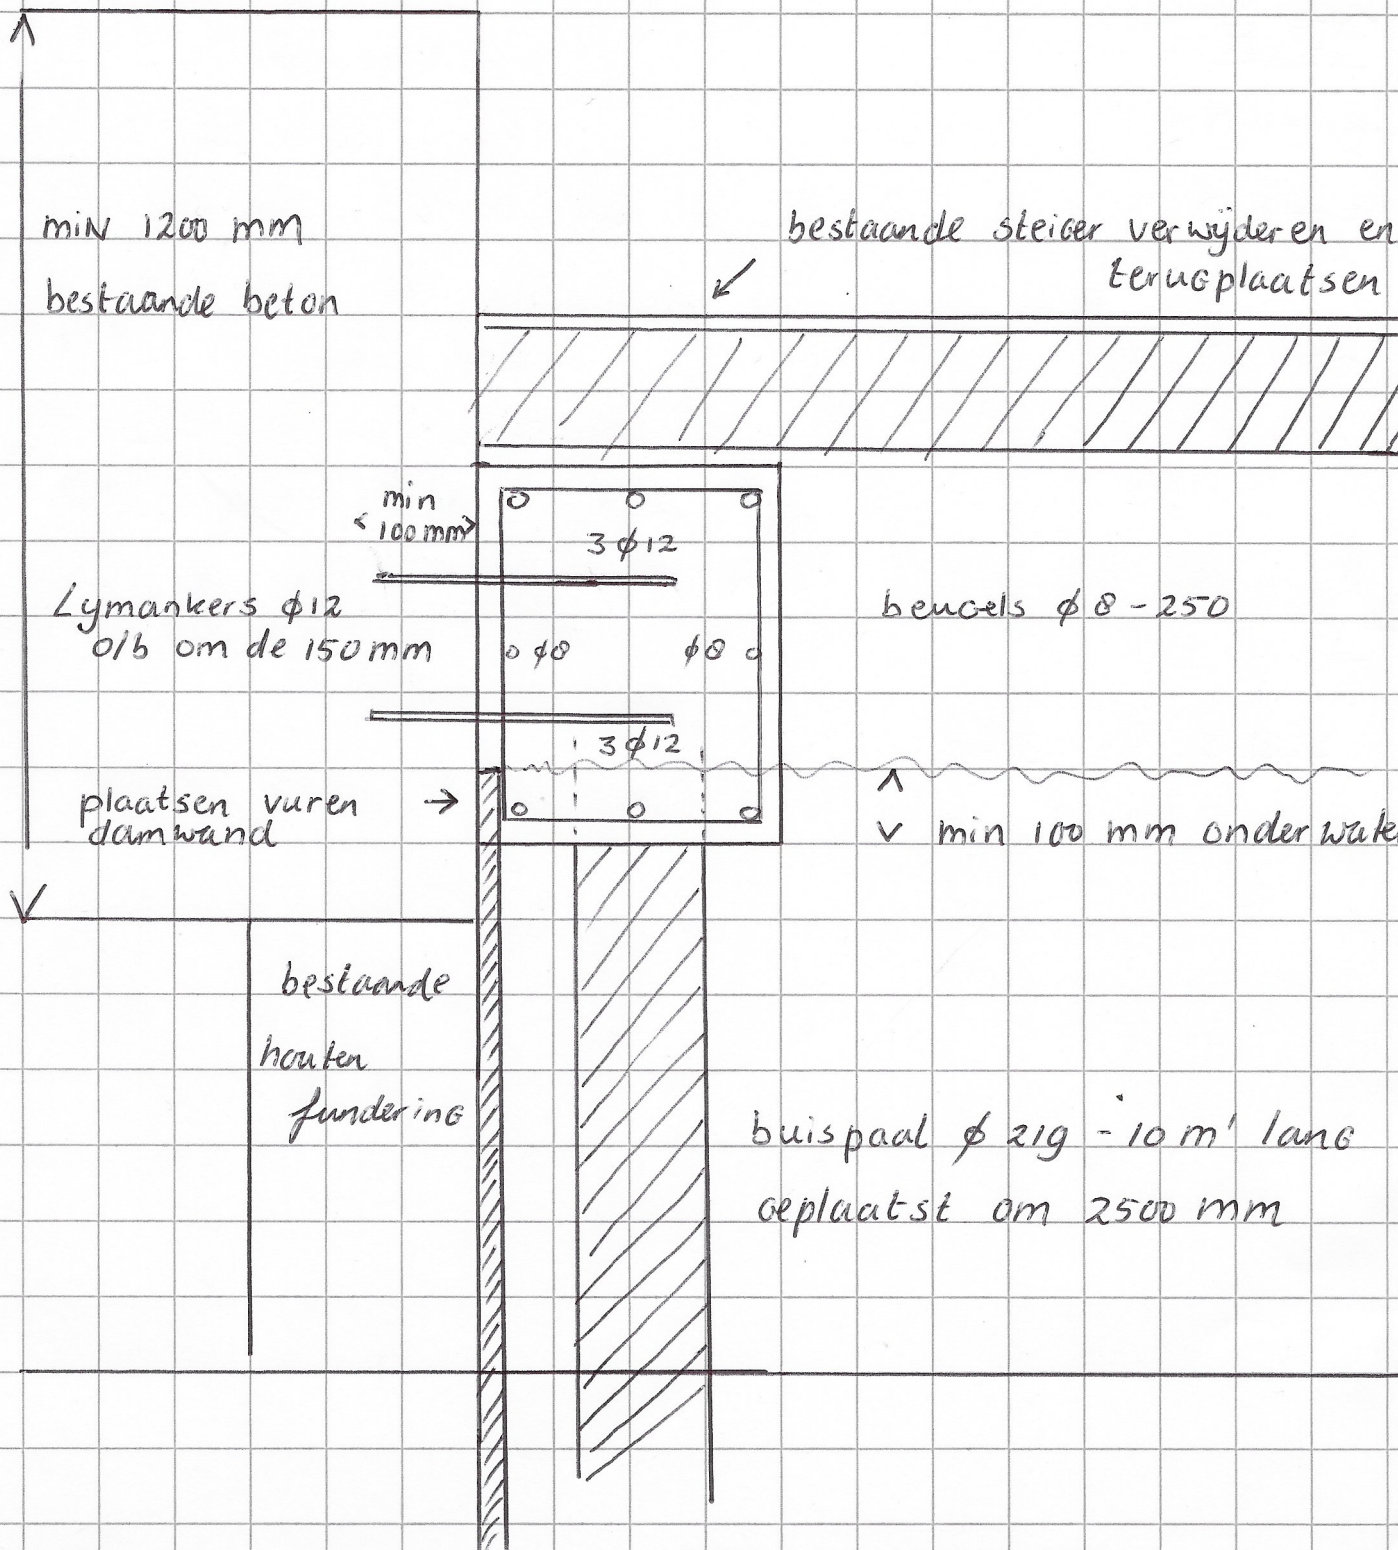 min 1200 mm
bestaande beton
bestaande steiger verwijderen en
terugplaatsen
min
100 mm
3 ϕ 12
Lymankers ϕ12
o/b om de 150 mm
beugels ϕ 8 - 250
ϕ8
ϕ8
3 ϕ 12
plaatsen vuren
damwand
min 100 mm onder wate
bestaande
houten
fundering
buispaal ϕ 219 - 10 m' lang
geplaatst om 2500 mm